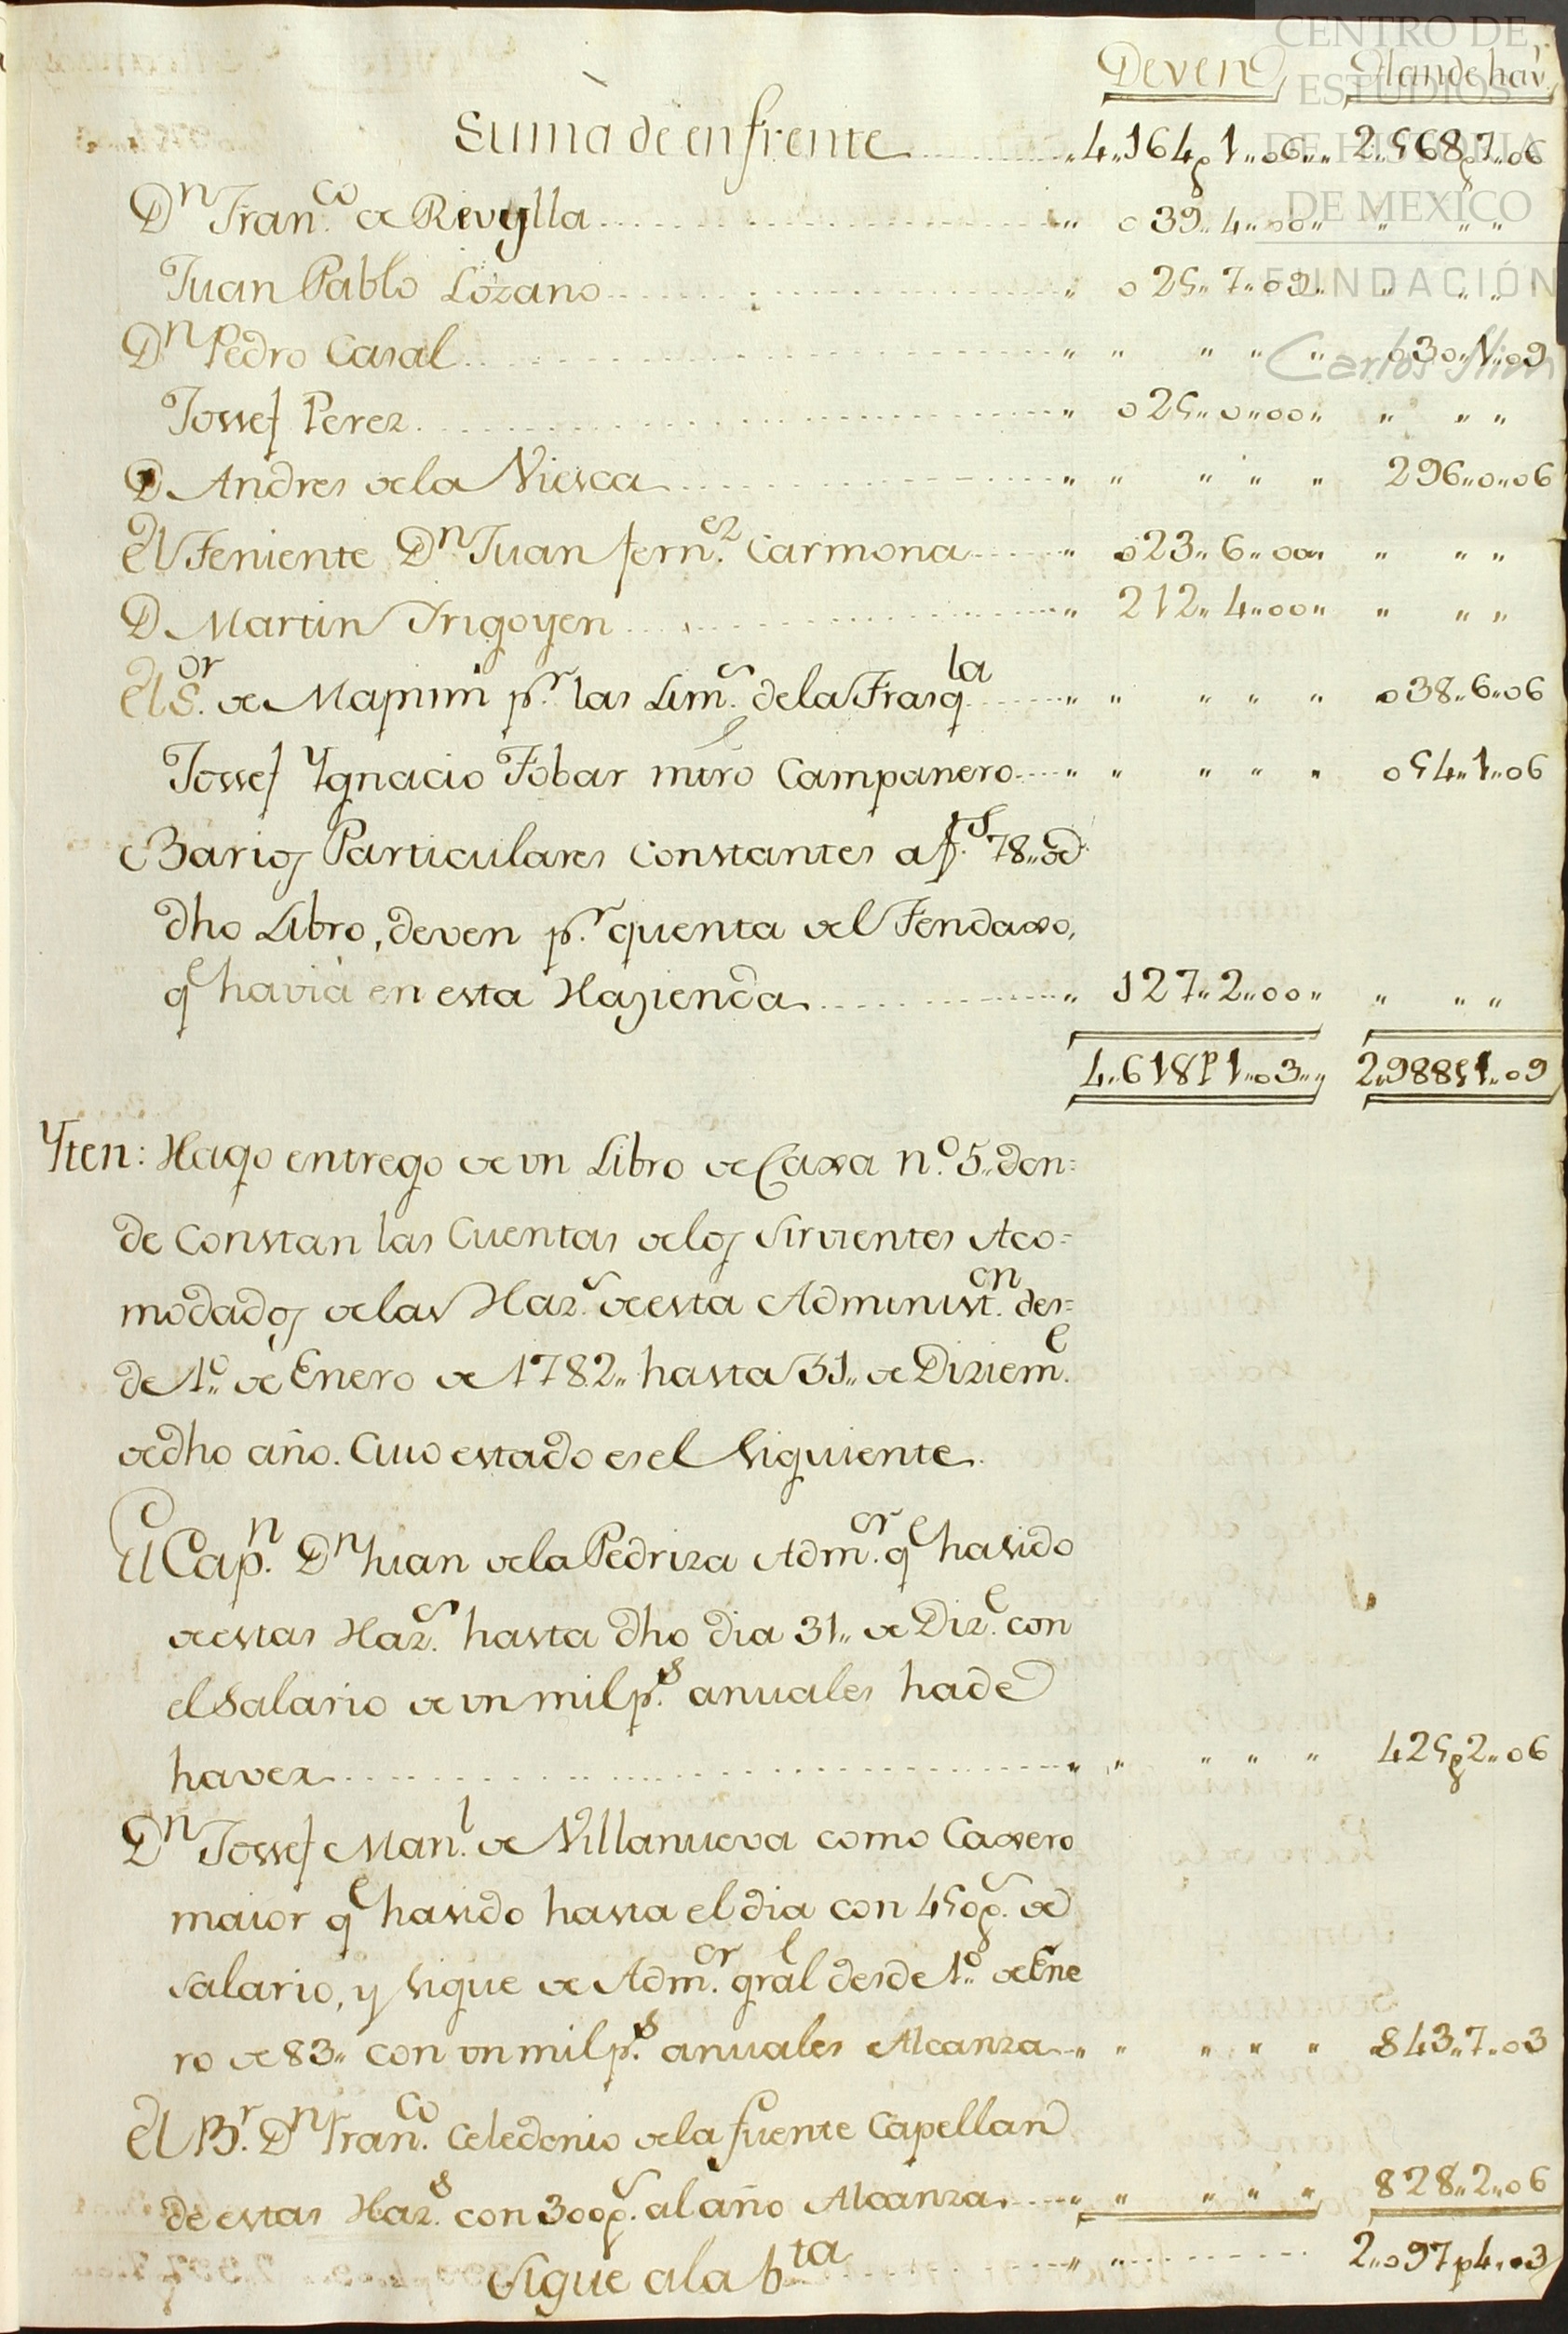 CENTRO DE
ESTUDIOS
DE HISTORIA
DE MEXICO
FUNDACIÓN
Carlos Slim
Deven Han de hav.r
Suma de enfrente 4..164p1..06.. 2..568p7..06
Dn Franco. de Revylla 039..4..00..
Juan Pablo Lozano 025..7..09..
Dn Pedro Casal 030..1..09
Jossef Perez 025..0..00..
D Andres de la Viesca 296..0..06
El Teniente Dn Juan fernez. Carmona 023..6..00..
D Martin Yrigoyen 212..4..00..
El Sor. de Mapimi pr. las Lims. de la Frasqla 038..6..06
Jossef Ygnacio Tobar mtro Campanero 054..1..06
Barios Particulares Constantes a fs. 78..de
dho Libro, deven pr. quenta del Tendaxo,
qe havia en esta Hazienda 127..2..00..
4..618p1..03.. 2..988p1..09
Yten: Hago entrego de vn Libro de Caxa no. 5..don=
de Constan las Cuentas de los Sirvientes Aco=
modados de las Hazs. de esta Administon. des=
de 1o.. de Enero de 1782.. hasta 31.. de Dizieme.
de dho año. Cuio estado es el siguiente.
El Capn. Dn Juan de la Pedriza Admor. qe ha sido
de estas Hazs. hasta dho dia 31.. de Dize. con
el Salario de vn mil ps. anuales ha de
haver 425p2..06
Dn Jossef Manl. de Villanueva como Caxero
maior qe ha sido hasta el dia con 450ps. de
salario, y sigue de Admor. gral desde 1o.. de Ene
ro de 83.. con vn mil ps. anuales Alcanza 843..7..03
El Br. Dn Franco. Celedonio de la fuente Capellan
de estas Hazs. con 300ps. al año Alcanza 828..2..06
Sigue a la bta 2..097p4..03